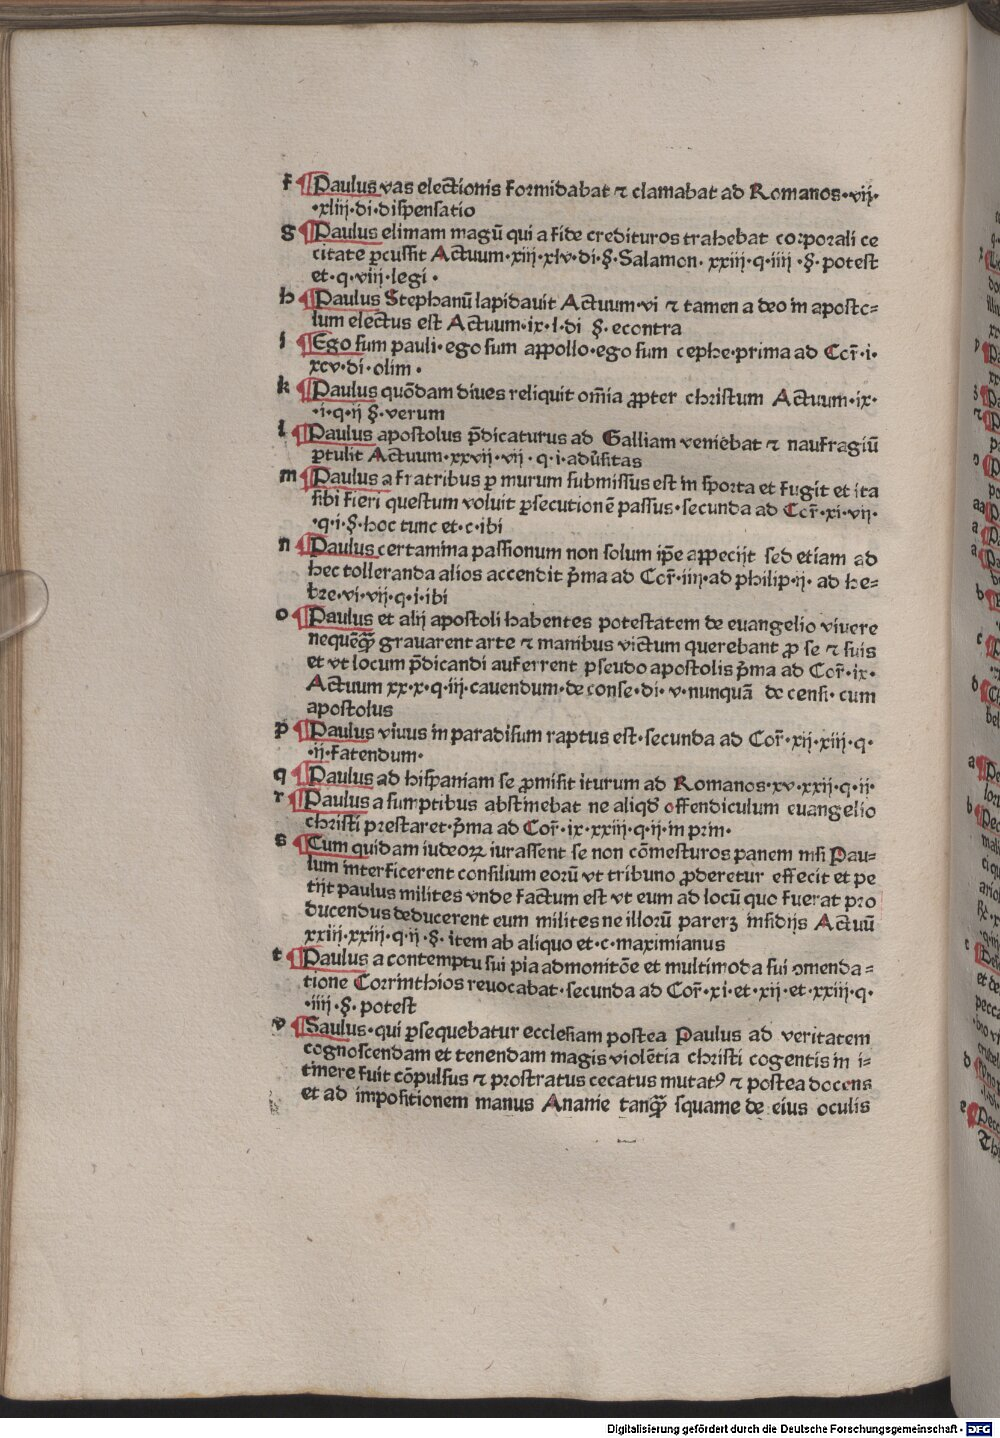 f ¶Paulus vas electionis formidabat ⁊ clamabat ad Romanos·vij·
·xliij·di·dispensatio
g ¶Paulus elimam magū qui a fide credituros trahebat corporali ce
citate ꝑcussit Actuum·xiij·xlv·di·§·Salamon·xxiij·q·iiij·§·potest
et·q·viij·legi·
h ¶Paulus Stephanū lapidavit Actuum·vi ⁊ tamen a deo in aposto=
lum electus est Actuum·ix·l·di §·econtra
i ¶Ego sum pauli·ego sum appollo·ego sum cephe·prima ad Cor̄·i·
xcv·di·olim·
k ¶Paulus quōdam diues reliquit om̄ia ꝓpter christum Actuum·ix·
·i·q·ij §·verum
l ¶Paulus apostolus p̄dicaturus ad Galliam veniebat ⁊ naufragiū
ꝑtulit Actuum·xxvij·vij·q·i·adūsitas
m ¶Paulus a fratribus ꝑ murum submissus est in sporta et fugit et ita
sibi fieri questum voluit ꝑsecutionē passus·secunda ad Cor̄·xi·vij·
·q·i·§·hoc tunc et·c·ibi
n ¶Paulus certamina passionum non solum ip̄e appecijt sed etiam ad
hec tolleranda alios accendit p̄ma ad Cor̄·iiij·ad philip·ij·ad he=
bre·vi·vij·q·i·ibi
o ¶Paulus et alij apostoli habentes potestatem de euangelio vivere
nequēqꝫ̄ grauarent arte ⁊ manibus victum querebant ꝓ se ⁊ suis
et vt locum p̄dicandi auferrent pseudo apostolis p̄ma ad Cor̄·ix·
Actuum xx·x·q·iij·cauendum·de conse·di·v·nunquā de censi·cum
apostolus
p ¶Paulus viuus in paradisum raptus est·secunda ad Cor̄·xij·xiij·q·
·ij·fatendum·
q ¶Paulus ad hispaniam se ꝓmisit iturum ad Romanos·xv·xxij·q·ij·
r ¶Paulus a sumptibus abstinebat ne aliqd̄ offendiculum euangelio
christi prestaret·p̄ma ad Cor̄·ix·xxiij·q·ij·in prin·
s ¶Cum quidam iudeoꝝ iurassent se non cōmesturos panem nisi Pau=
lum interficerent consilium eorū vt tribuno ꝓderetur effecit et pe
tijt paulus milites vnde factum est vt eum ad locū quo fuerat pro
ducendus deducerent eum milites ne illorū parerꝫ insidijs Actuū
xxiij·xxiij·q·ij·§·item ab aliquo et·c·maximianus
t ¶Paulus a contemptu sui pia admonitōe et multimoda sui ɔmenda=
tione Corrinthios reuocabat·secunda ad Cor̄·xi·et·xij·et·xxiij·q·
·iiij·§·potest
v ¶Saulus·qui ꝑsequebatur ecclesiam postea Paulus ad veritatem
cognoscendam et tenendam magis violētia christi cogentis in i=
tinere fuit cōpulsus ⁊ prostratus cecatus mutatꝰ ⁊ postea docens
et ad impositionem manus Ananie tanqꝫ̄ squame de eius oculis
Digitalisierung gefördert durch die Deutsche Forschungsgemeinschaft - DFG